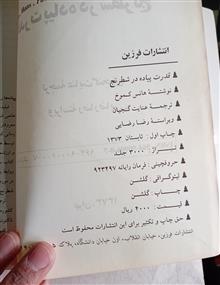 انتشارات فرزین
قدرت پیاده در شطرنج
نوشتهٔ هانس کموخ
ترجمهٔ عنایت گنجیان
ویراستهٔ رضا رضایی
چاپ اول: تابستان ۱۳۷۳
تیراژ: ۳۰۰۰ جلد
حروفچینی: فرمان رایانه ۹۲۳۴۹۷
لیتوگرافی: گلشن
چاپ: گلشن
قیمت: ۴۰۰۰ ریال
حق چاپ و تکثیر برای این انتشارات محفوظ است
انتشارات فرزین، خیابان انقلاب، اول خیابان دانشگاه، پلاک